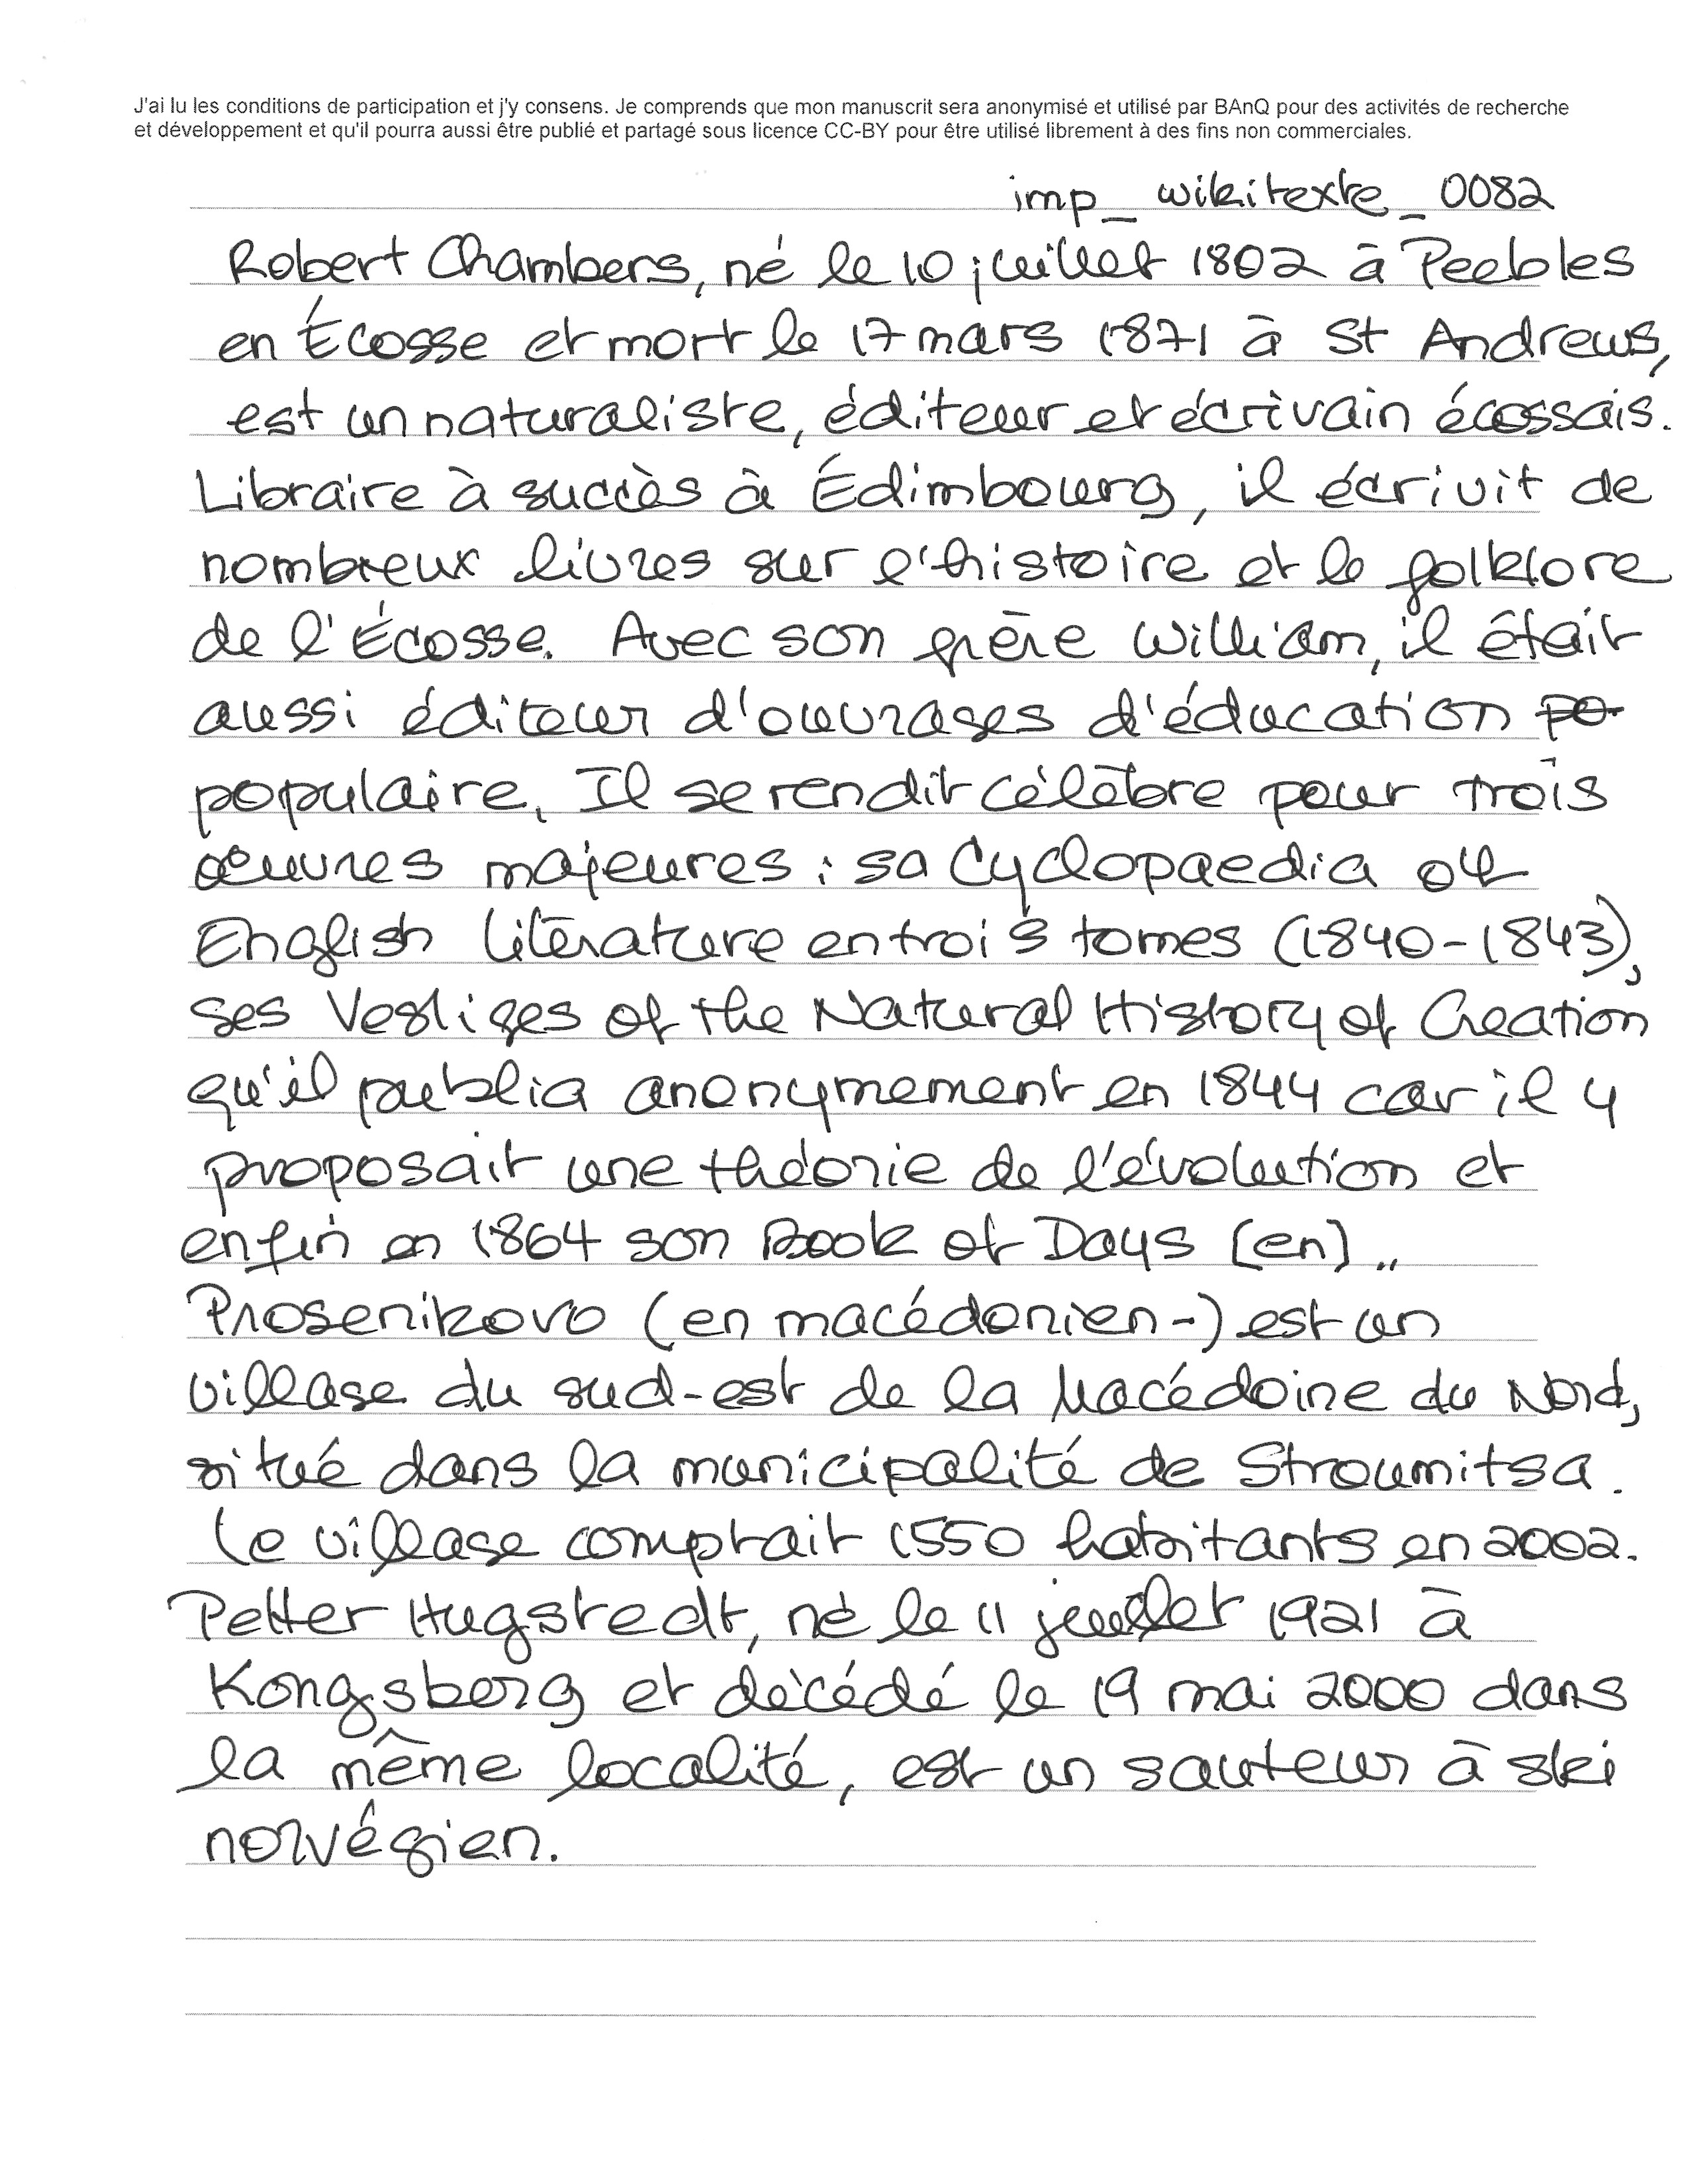 J'ai lu les conditions de participation et j'y consens. Je comprends que mon manuscrit sera anonymisé et utilisé par BAnQ pour des activités de recherche
et développement et qu'il pourra aussi être publié et partagé sous licence CC-BY pour être utilisé librement à des fins non commerciales.
imp_wikitexte_0082
Robert Chambers, né le 10 juillet 1802 à Peebles
en Écosse et mort le 17 mars 1871 à St Andrews,
est un naturaliste, éditeur et écrivain écossais.
Libraire à succès à Édimbourg, il écrivit de
nombreux livres sur l'histoire et le folklore
de l'Écosse. Avec son frère William, il était
aussi éditeur d'ouvrages d'éducation po
populaire. Il se rendit célèbre pour trois
œuvres majeures : sa Cyclopaedia of
English literature en trois tomes (1840-1843),
ses Vestiges of the Natural History of Creation
qu'il publia anonymement en 1844 car il y
proposait une théorie de l'évolution et
enfin en 1864 son Book of Days [en]..
Prosenikovo (en macédonien-) est un
village du sud-est de la Macédoine du Nord,
situé dans la municipalité de Stroumitsa.
Le village comptait 1550 habitants en 2002.
Petter Hugstedt, né le 11 juillet 1921 à
Kongsberg et décédé le 19 mai 2000 dans
la même localité, est un sauteur à ski
norvégien.